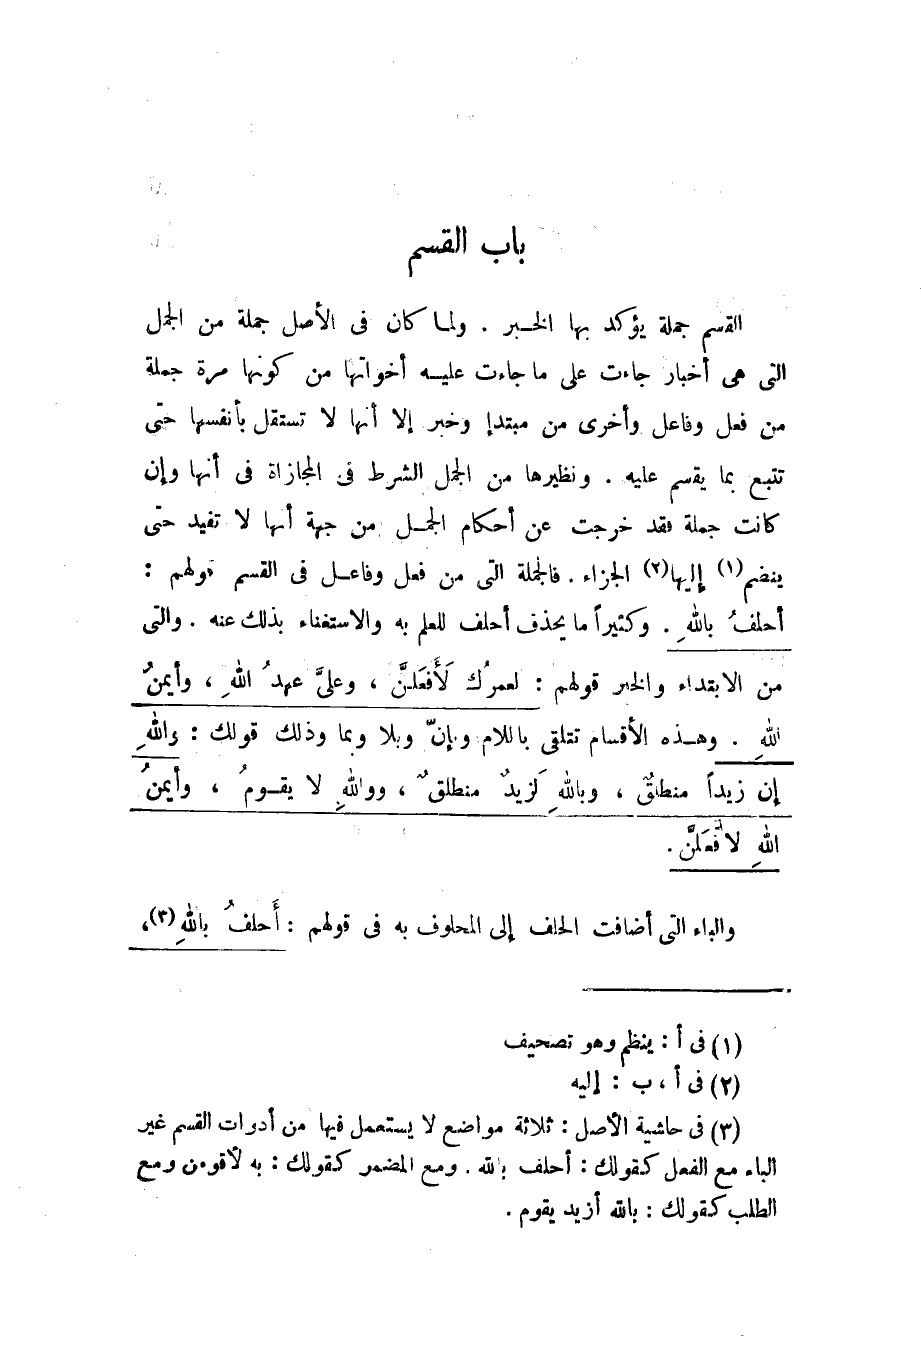 باب القسم
القسم جملة يؤكد بها الخبر . ولما كان فى الأصل جملة من الجمل
التى هى أخبار جاءت على ما جاءت عليه أخواتها من كونها مرة جملة
من فعل وفاعل وأخرى من مبتدإ وخبر إلا أنها لا تستقل بأنفسها حتّى
تتبع بما يقسم عليه . ونظيرها من الجمل الشرط فى المجازاة فى أنها وإن
كانت جملة فقد خرجت عن أحكام الجمل من جهة أنها لا تفيد حتّى
ينضم(١) إليها(٢) الجزاء . فالجملة التى من فعل وفاعل فى القسم قولهم :
أحلفُ باللهِ . وكثيراً ما يحذف أحلف للعلم به والاستغناء بذلك عنه . والتى
من الابتداء والخبر قولهم : لعمرُك لَأَفعَلنَّ ، وعلىَّ عهدُ اللهِ ، وأيمنُ
اللهِ . وهذه الأقسام تتلقى باللام وبإنّ وبلا وبما وذلك قولك : واللهِ
إن زيداً منطلقٌ ، وباللهِ لَزيدٌ منطلقٌ ، وواللهِ لا يقومُ ، وأيمنُ
اللهِ لأفعَلنَّ .
والباء التى أضافت الحلف إلى المحلوف به فى قولهم : أَحلفُ باللهِ(٣)،
(١) فى أ : ينظم وهو تصحيف
(٢) فى أ ، ب : إليه
(٣) فى حاشية الأصل : ثلاثة مواضع لا يستعمل فيها من أدوات القسم غير
الباء مع الفعل كقولك : أحلف بالله . ومع المضمر كقولك : به لأقومن ومع
الطلب كقولك : بالله أزيد يقوم .